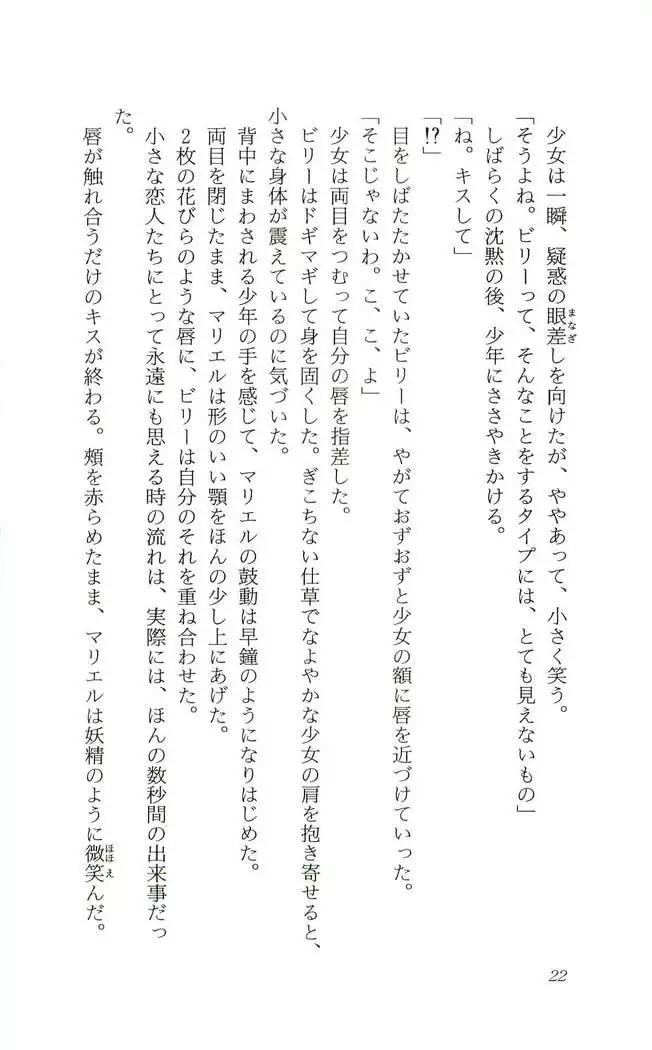 少女は一瞬、疑惑の眼差しを向けたが、ややあって、小さく笑う。
「そうよね。ビリーって、そんなことをするタイプには、とても見えないもの」
しばらくの沈黙の後、少年にささやきかける。
「ね。キスして」
「!?」
目をしばたたかせていたビリーは、やがておずおずと少女の額に唇を近づけていった。
「そこじゃないわ。こ、こ、よ」
少女は両目をつむって自分の唇を指差した。
ビリーはドギマギして身を固くした。ぎこちない仕草でなよやかな少女の肩を抱き寄せると、
小さな身体が震えているのに気づいた。
背中にまわされる少年の手を感じて、マリエルの鼓動は早鐘のようになりはじめた。
両目を閉じたまま、マリエルは形のいい顎をほんの少し上にあげた。
2枚の花びらのような唇に、ビリーは自分のそれを重ね合わせた。
小さな恋人たちにとって永遠にも思える時の流れは、実際には、ほんの数秒間の出来事だっ
た。
唇が触れ合うだけのキスが終わる。頬を赤らめたまま、マリエルは妖精のように微笑んだ。
まなざ
ほほえ
22